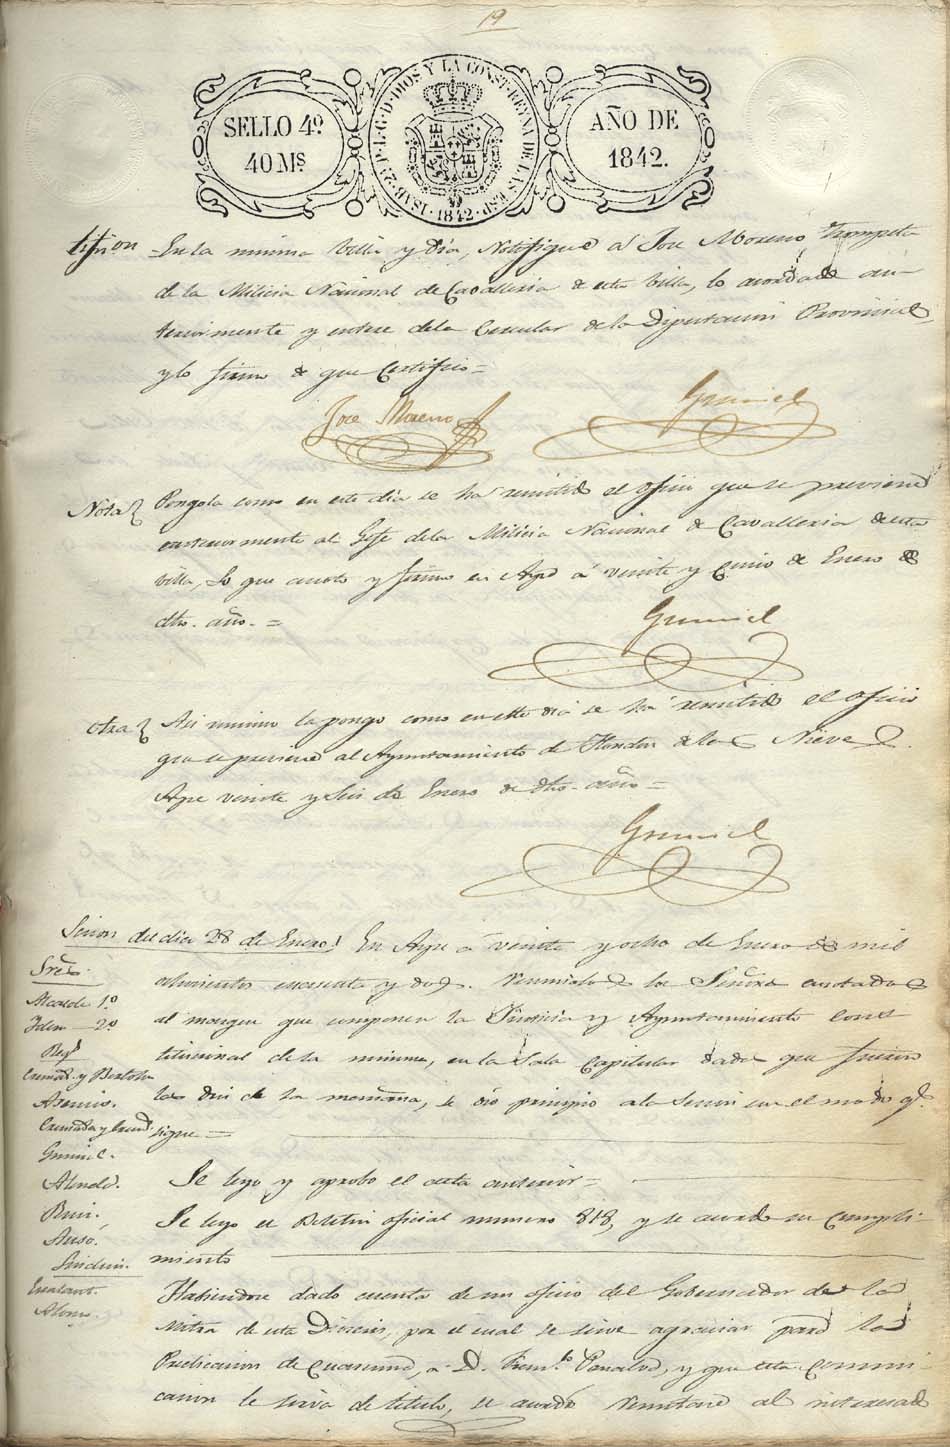 19
SELLO 4º.
40 Ms.
ISAB. 2ª P. L. G. D. DIOS Y LA CONST. REYNA DE LAS ESP.
1842
AÑO DE
1842.
En la misma Villa y Dia, Notifique á Jose Moreno Trompeta
de la Milicia Nacional de Cavalleria de esta Villa, lo acordado an-
teriormente y entere dela Circular de la Diputacion Provincial,
y lo firmo de que Certifico =
Jose Moreno
Gumiel
Nota
Pongola como en este dia se ha remitido el oficio que se previene
anteriormente al Gefe dela Milicia Nacional de Cavalleria de esta
Villa, Lo que anoto y firmo en Aspe á veinte y Cinco de Enero de
dho. año. =
Gumiel
Otra
Asi mismo la pongo como en este dia se ha remitido el oficio
que se previene al Ayuntamiento de Hondon de las Nieves.
Aspe veinte y Seis de Enero de dho. año =
Gumiel
Sesion del dia 28 de Enero
En Aspe á veinte y ocho de Enero de mil
ochocientos cuarenta y dos. reunidos los Señores anotados
al margen que componen la Justicia y Ayuntamiento Cons
titucional de la misma, en la Sala Capitular dada que fueron
las diez de la mañana, se dió principio a la Sesion en el modo qe.
sigue =
Sres.
Alcalde 1º
Idem 2º
Regs.
Cremads. y Bertolu
Asencio.
Cremades y Cremds.
Gumiel.
Almodr.
Sindicos.
Alonso.
Se leyo y aprobo el acta anterior =
Se leyo el Boletin oficial numero 818, y se acordo su cumpli-
miento
Habiendose dado cuenta de un oficio del Gobernador de la
Mitra de esta Diocesis, por el cual se sirve agraciar para la
Predicacion de Cuaresma, a D. Franco. Penalva, y que esta Comuni-
cacion le sirva de titulo, se acordó remitirse al interesado